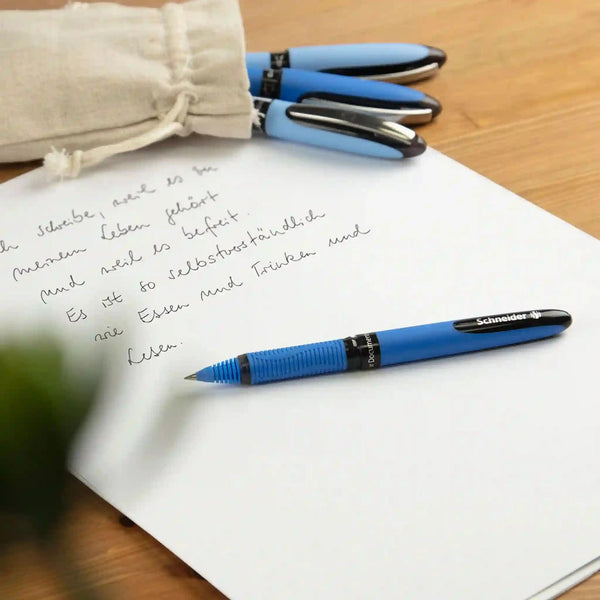 ch schreibe, weil es zu
meinem Leben gehört
und weil es befreit.
Es ist so selbstverständlich
wie Essen und Trinken und
Lesen.
Schneider
Documen